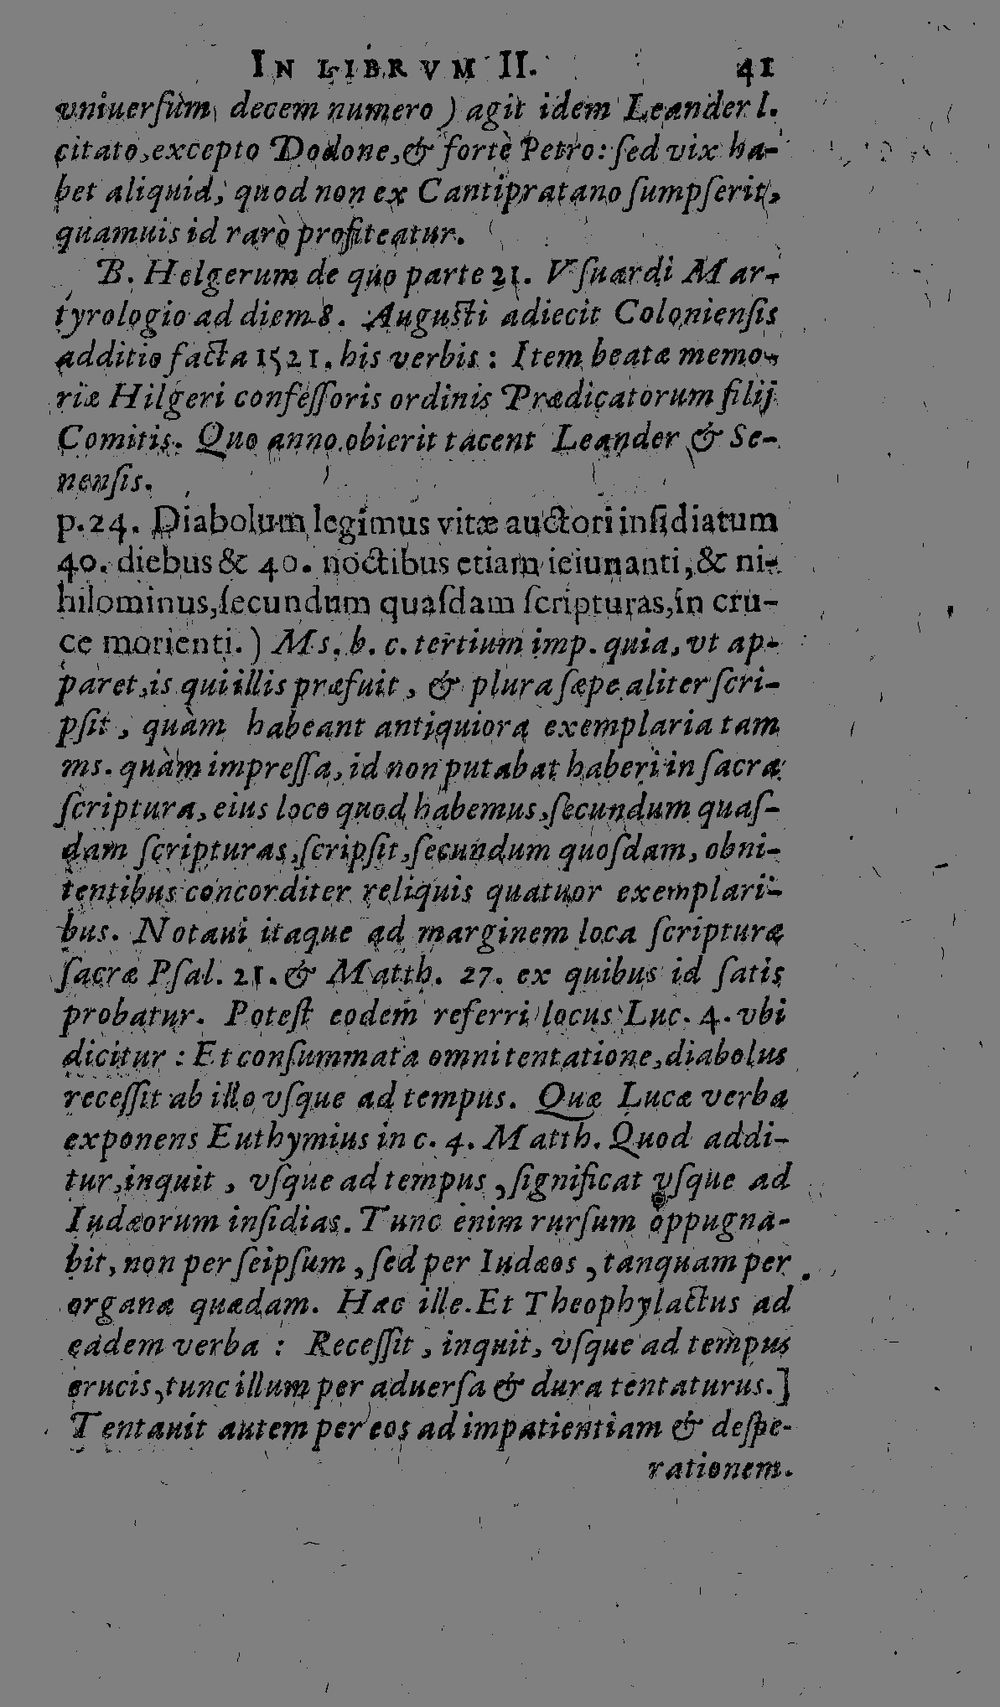 IN LIBRVM II. 41
vniuersum decem numero) agit idem Leander l.
citato, excepto Dodone, & fortè Petro: sed vix ha-
bet aliquid, quod non ex Cantipratano sumpserit,
quamuis id rarò profiteatur.
B. Helgerum de quo parte 21. Vsuardi Mar-
tyrologio ad diem 8. Augusti adiecit Coloniensis
additio facta 1521. his verbis: Item beatæ memo-
riæ Hilgeri confessoris ordinis Prædicatorum filij
Comitis. Quo anno obierit tacent Leander & Se-
nensis.
p.24. Diabolum legimus vitæ auctori insidiatum
40. diebus & 40. noctibus etiam ieiunanti, & ni-
hilominus, secundum quasdam scripturas, in cru-
ce morienti.) Ms. b. c. tertium imp. quia, vt ap-
paret, is qui illis præfuit, & plura sæpe aliter scri-
psit, quàm habeant antiquiora exemplaria tam
ms. quàm impressa, id non putabat haberi in sacra
scriptura, eius loco quod habemus, secundum quas-
dam scripturas, scripsit, secundum quosdam, obni-
tentibus concorditer reliquis quatuor exemplari-
bus. Notaui itaque ad marginem loca scripturæ
sacræ Psal. 21. & Matth. 27. ex quibus id satis
probatur. Potest eodem referri locus Luc. 4. vbi
dicitur: Et consummata omni tentatione, diabolus
recessit ab illo vsque ad tempus. Quæ Lucæ verba
exponens Euthymius in c. 4. Matth. Quod addi-
tur, inquit, vsque ad tempus, significat vsque ad
Iudæorum insidias. Tunc enim rursum oppugna-
bit, non per seipsum, sed per Iudæos, tanquam per
organa quædam. Hæc ille. Et Theophylactus ad
eadem verba: Recessit, inquit, vsque ad tempus
crucis, tunc illum per aduersa & dura tentaturus.]
Tentauit autem per eos ad impatientiam & despe-
rationem.